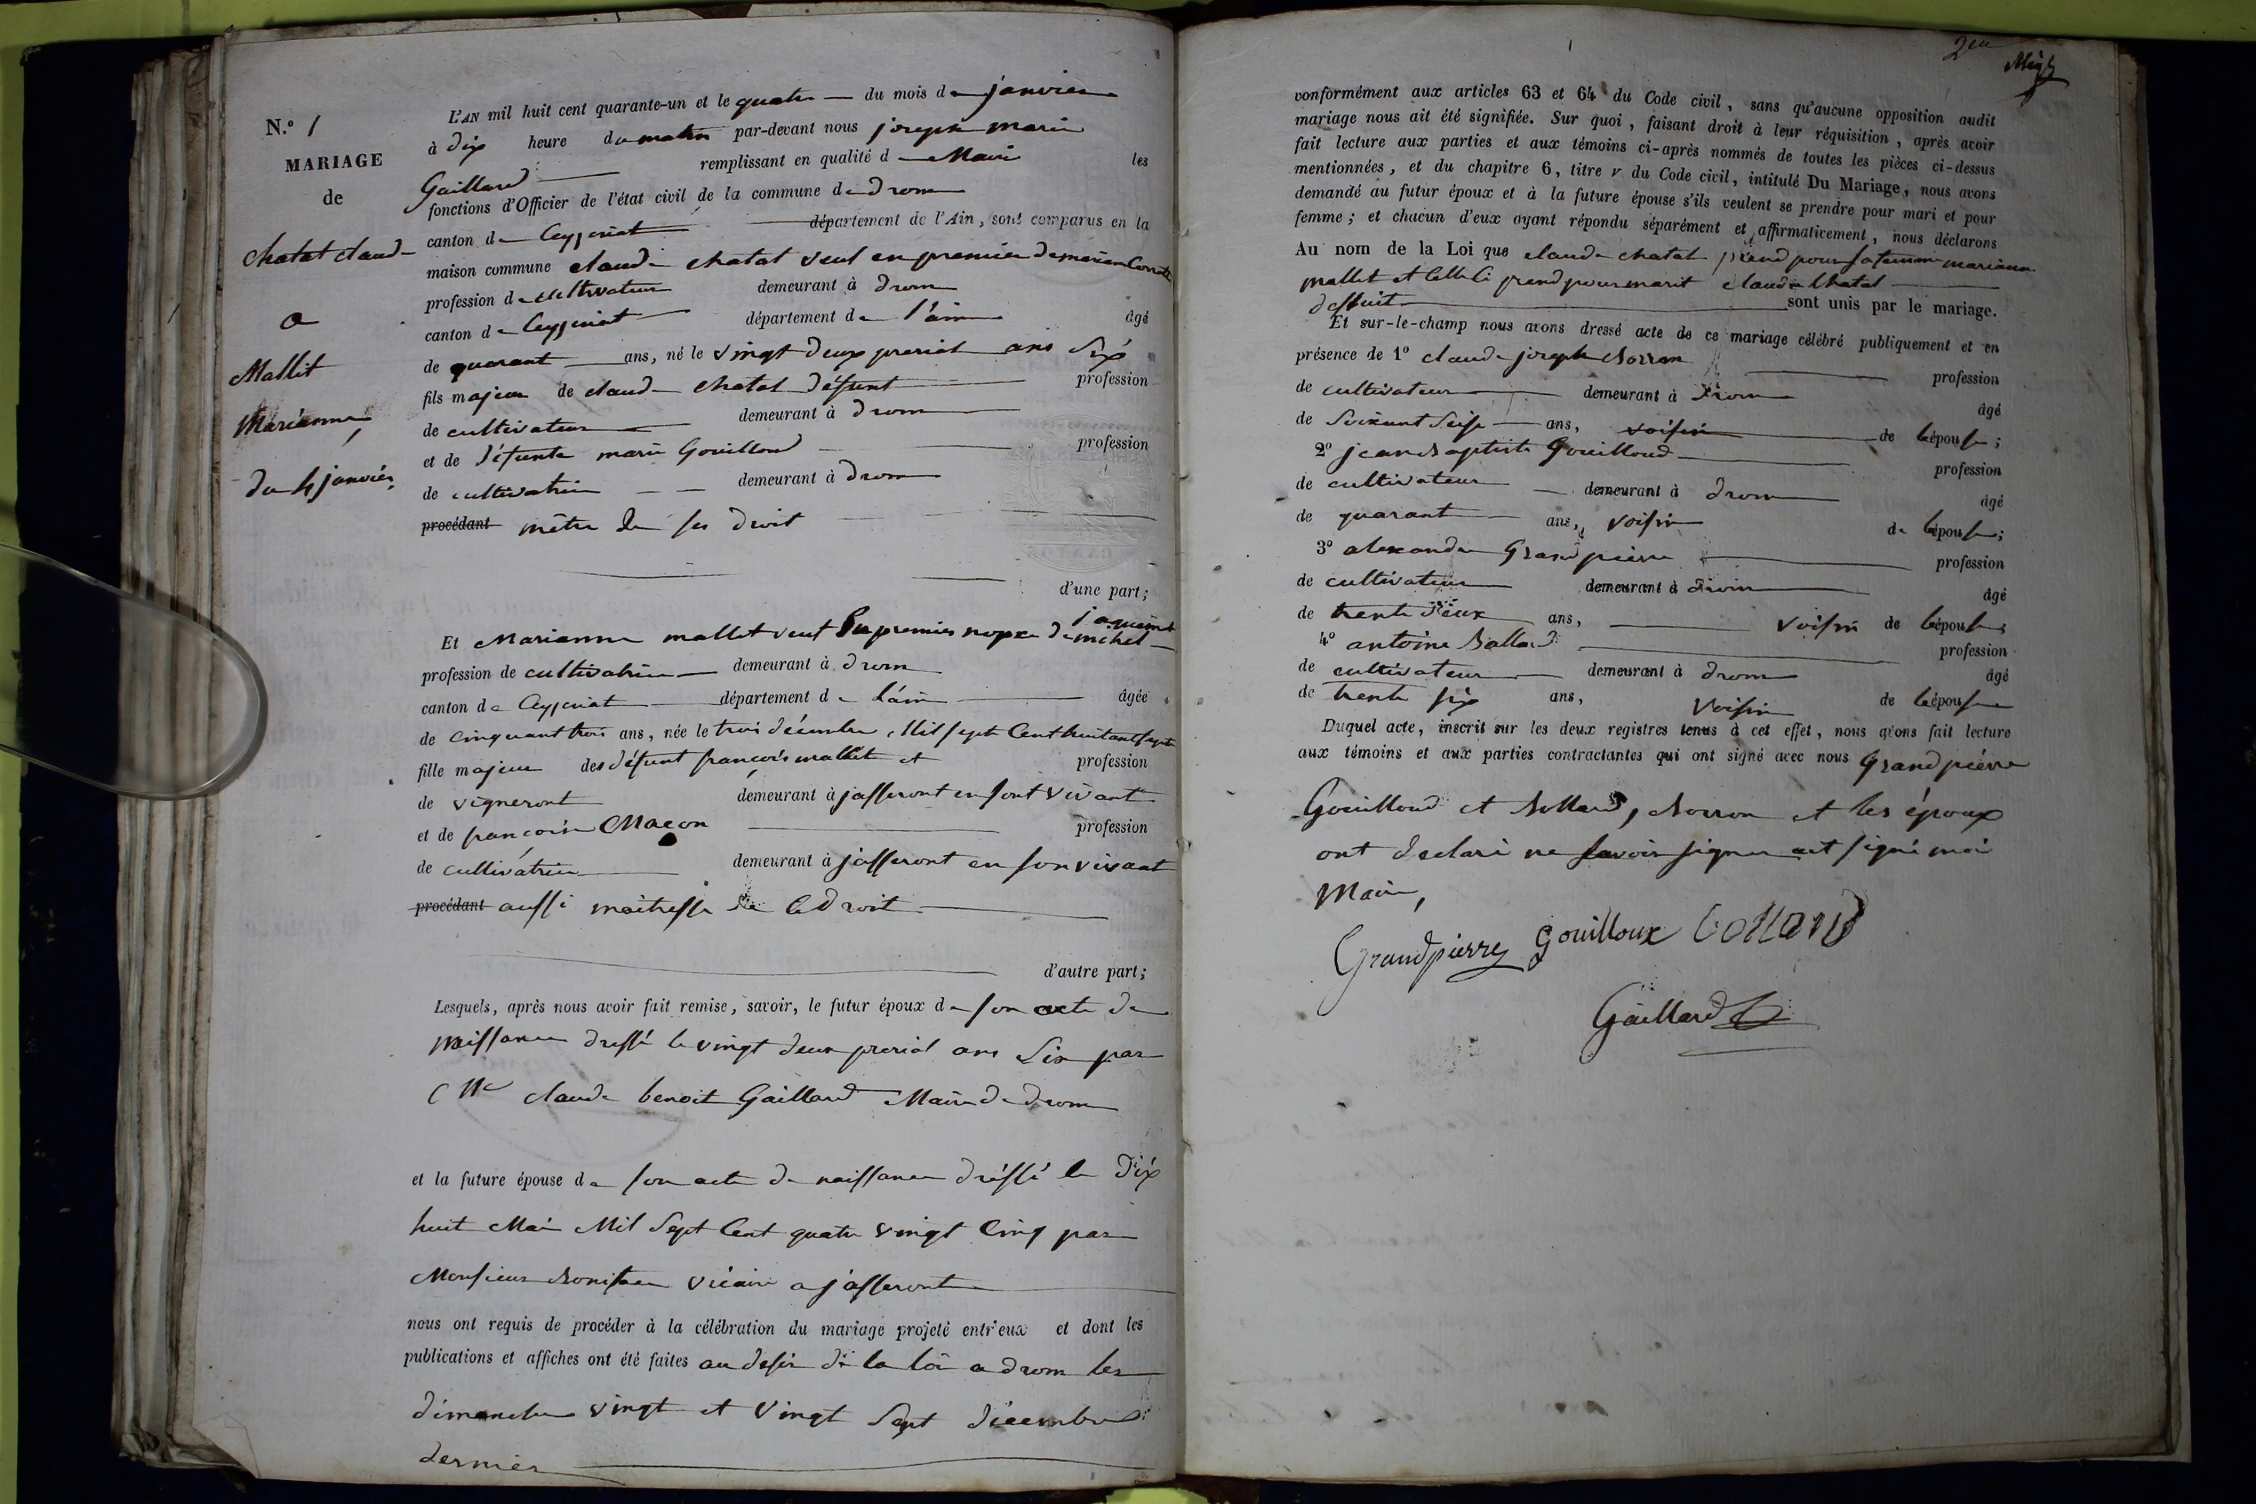 N.º 1
MARIAGE
de
Chatat claude
a
Mallet
Marianne,
du 4 janvier,
L'AN mil huit cent quarante-un et le quatre du mois de janvier
à dix heure du matin par-devant nous joseph marie
Gaillard remplissant en qualité de Maire les
fonctions d'Officier de l'état civil de la commune de drom
canton de Ceyzeriat département de l'Ain, sont comparus en la
maison commune claude chatat veuf en premier de marianne
profession de cultivateur demeurant à drom
canton de Ceyzeriat département de l'ain âgé
de quarant ans, né le vingt deux prerial ans six
fils majeur de claude chatat défunt profession
de cultivateur demeurant à drom
et de défunte marie Gouilloud profession
de cultivatrice demeurant à drom
procédant mêtre de ses droit
d'une part;
jaquemet
Et Marianne mallet veuf en premier nopce de michel
profession de cultivatrice demeurant à drom
canton de Ceyzeriat département de l'ain âgée
de cinquant trois ans, née le trois décembre Mil sept Cent huitantsept
fille majeur des défunt françois mallet et profession
de vigneront demeurant à jasseront en sont vivant
et de françoise Macon profession
de cultivatrice demeurant à jasseront en son vivant
procédant aussi maitresse de ce droit
d'autre part;
Lesquels, après nous avoir fait remise, savoir, le futur époux de son acte de
naissance dressé le vingt deux prerial ans six par
claude benoit Gaillard Maire de drom
et la future épouse de son acte de naissance dréssé le dix
huit Mai Mil Sept Cent quatre vingt Cinq par
Monsieur vicaire a jasseront
nous ont requis de procéder à la célébration du mariage projeté entr'eux et dont les
publications et affiches ont été faites au desir de la loi a drom les
dimanche vingt et vingt sept décembre
dernier
2eu
conformément aux articles 63 et 64 du Code civil, sans qu'aucune opposition audit
mariage nous ait été signifiée. Sur quoi, faisant droit à leur réquisition, après avoir
fait lecture aux parties et aux témoins ci-après nommés de toutes les pièces ci-dessus
mentionnées, et du chapitre 6, titre v du Code civil, intitulé Du Mariage, nous avons
demandé au futur époux et à la future épouse s'ils veulent se prendre pour mari et pour
femme; et chacun d'eux ayant répondu séparément et affirmativement, nous déclarons
Au nom de la Loi que claude chatat prend pour sa femme marianne
mallet et celle ci prend pour marit claude Chatat
desfuit sont unis par le mariage.
Et sur-le-champ nous avons dressé acte de ce mariage célébré publiquement et en
présence de 1º claude joseph Borron profession
de cultivateur demeurant à Drom âgé
de soixant seise ans, voisin de lépouse;
2º jean Baptiste Gouilloud profession
de cultivateur demeurant à drom âgé
de quarant ans, voisin de lépouse;
3º alexandre Grandpierre profession
de cultivateur demeurant à Drom âgé
de trente deux ans, voisin de lépouse
4º antoine Bollard profession
de cultivateur demeurant à drom âgé
de trente six ans, voisin de lépouse
Duquel acte, inscrit sur les deux registres tenus à cet effet, nous avons fait lecture
aux témoins et aux parties contractantes qui ont signé avec nous Grandpierre
Gouilloud et Bollard, Borron et les époux
ont declaré ne savoir signer et signé moi
Maire,
Grandpierre Gouilloux bollard
Gaillard